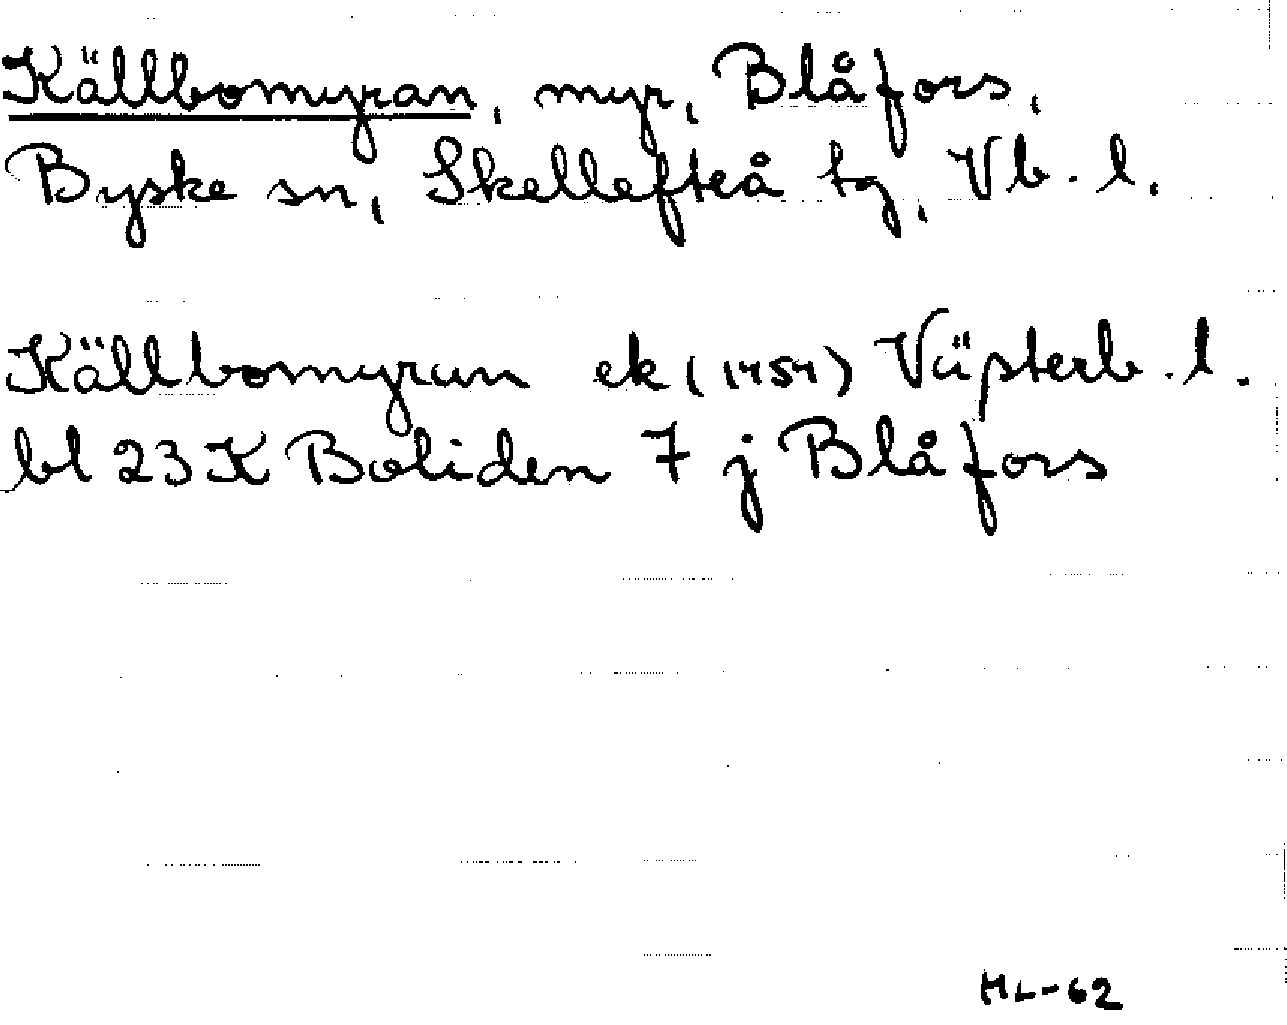 Källbomyran, myr, Blåfors,
Byske sn, Skellefteå tg, Vb. l.
Källbomyran ek (1954) Västerb. l.
bl 23 K Boliden 7 j Blåfors
HL-62